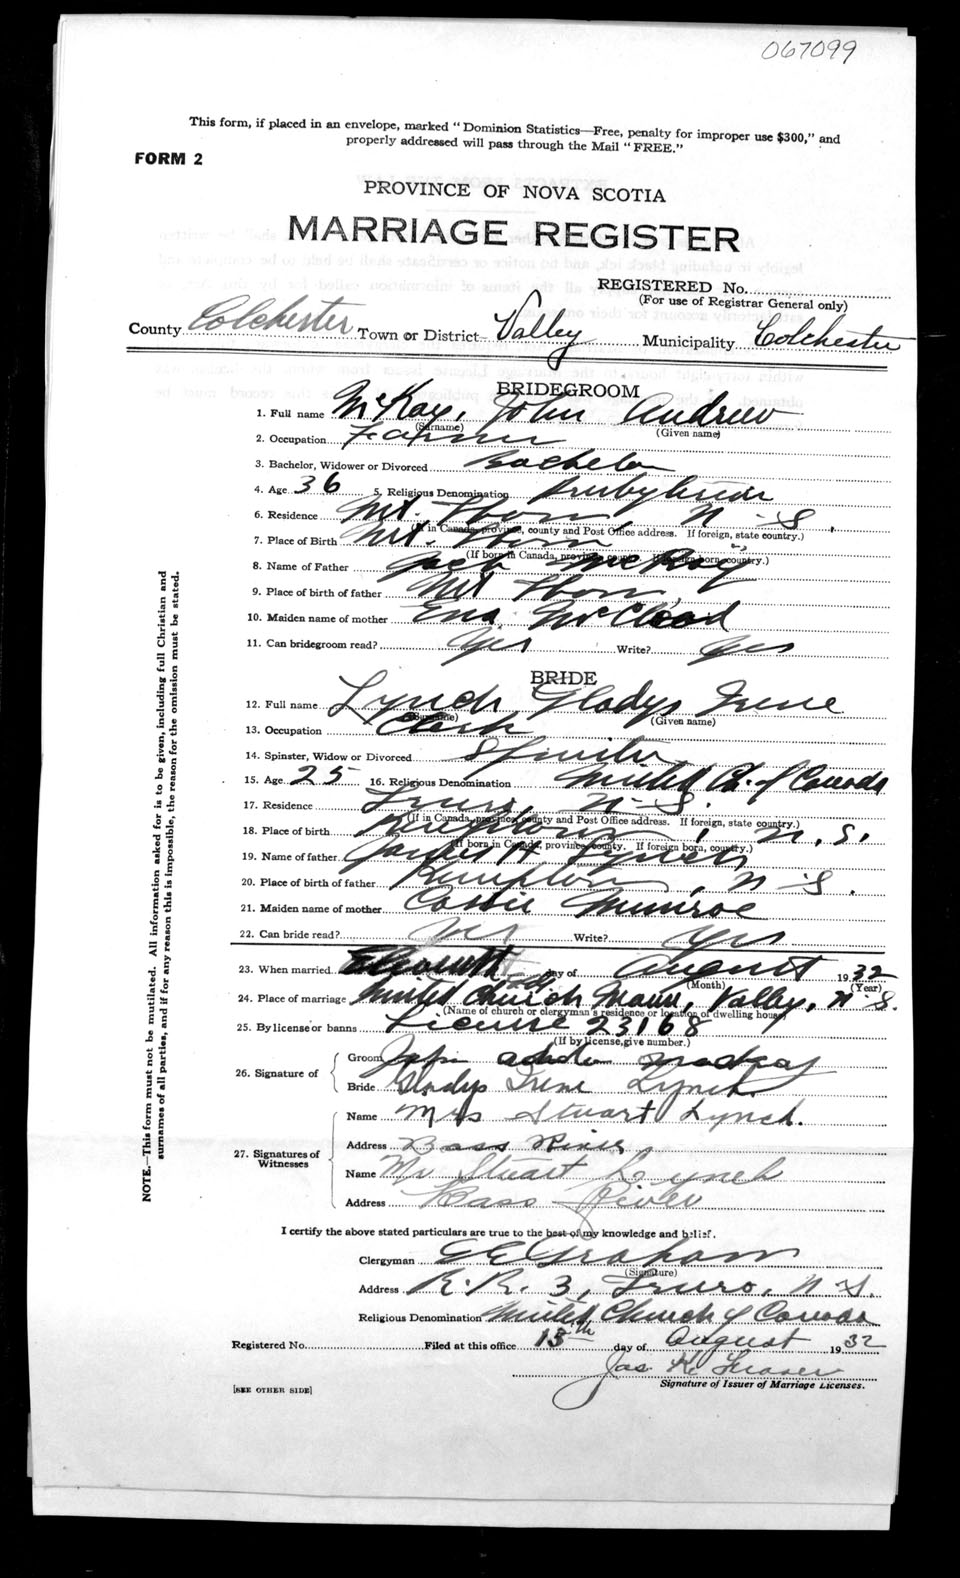 067099
This form, if placed in an envelope, marked "Dominion Statistics—Free, penalty for improper use $300," and
properly addressed will pass through the Mail "FREE."
FORM 2
PROVINCE OF NOVA SCOTIA
MARRIAGE REGISTER
REGISTERED No.
(For use of Registrar General only)
County Colchester Town or District Valley Municipality Colchester
BRIDEGROOM
1. Full name McKay, John Andrew
(Surname) (Given name)
2. Occupation Farmer
3. Bachelor, Widower or Divorced Bachelor
4. Age 36 5. Religious Denomination Presbyterian
6. Residence Mt. Thom, N.S.
(If in Canada, province, county and Post Office address. If foreign, state country.)
7. Place of Birth Mt. Thom
(If born in Canada, province, county. If foreign born, country.)
8. Name of Father McKay
9. Place of birth of father Mt Thom
10. Maiden name of mother McCleod
11. Can bridegroom read? Yes Write? Yes
BRIDE
12. Full name Lynch, Gladys Irene
(Surname) (Given name)
13. Occupation Clerk
14. Spinster, Widow or Divorced Spinster
15. Age 25 16. Religious Denomination United Ch. of Canada
17. Residence Truro, N.S.
(If in Canada, province, county and Post Office address. If foreign, state country.)
18. Place of birth Kemptown, N.S.
(If born in Canada, province, county. If foreign born, country.)
19. Name of father James H Lynch
20. Place of birth of father Kemptown, N.S.
21. Maiden name of mother Cassie Munroe
22. Can bride read? Yes Write? Yes
23. When married day of August 1932
(Month) (Year)
24. Place of marriage United Church Manse, Valley, N.S.
(Name of church or clergyman's residence or location of dwelling house)
25. By license or banns License 23168
(If by license, give number.)
26. Signature of
Groom John
Bride Gladys Irene Lynch
27. Signatures of Witnesses
Name Mrs Stuart Lynch.
Address Bass River
Name Mr Stuart Lynch
Address Bass River
I certify the above stated particulars are true to the best of my knowledge and belief.
Clergyman G E Graham
(Signature)
Address R.R. 3, Truro, N.S.
Religious Denomination United Church of Canada
Registered No. Filed at this office 13th day of August 1932
Jas K. Fraser
Signature of Issuer of Marriage Licenses.
[SEE OTHER SIDE]
NOTE.—This form must not be mutilated. All information asked for is to be given, including full Christian and
surnames of all parties, and if for any reason this is impossible, the reason for the omission must be stated.